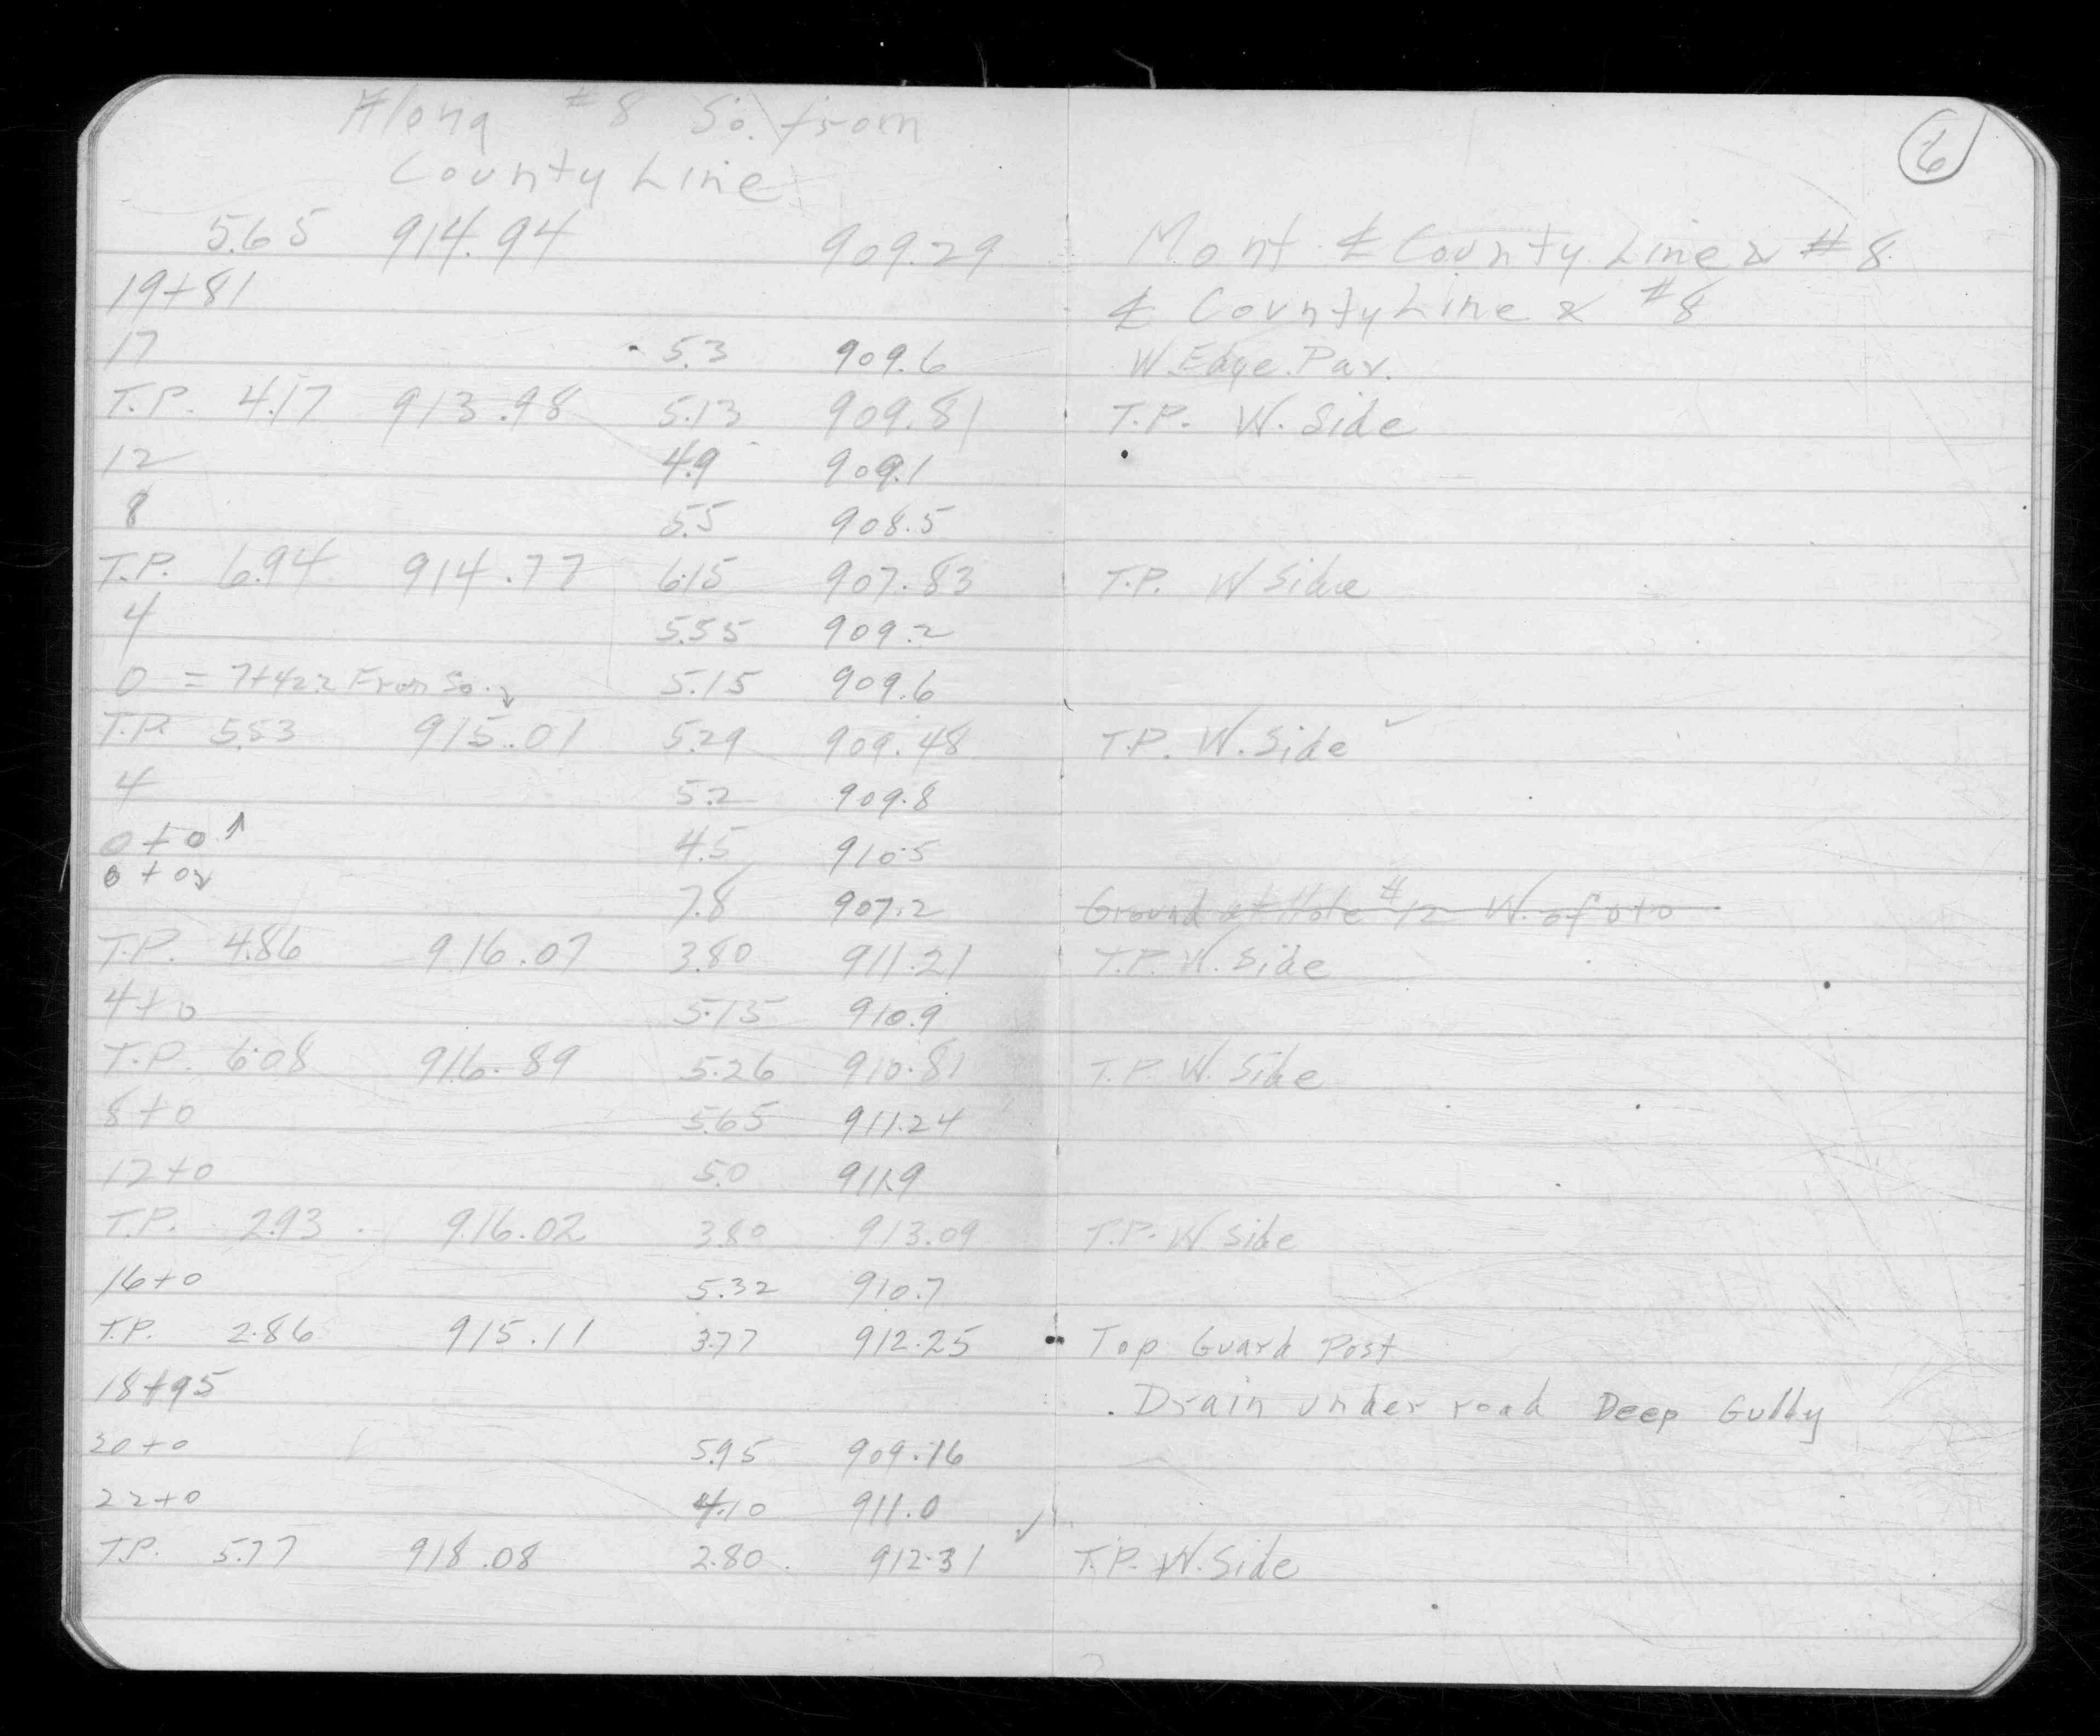 Along #8 So. from
County Line
6
5.65 914.94 909.29 Mont ℄ County Line & #8
19+81 ℄ County Line & #8
17 5.3 909.6 W. Edge Pav.
T.P. 4.17 913.98 5.13 909.81 T.P. W. Side
12 4.9 909.1
8 5.5 908.5
T.P. 6.94 914.77 6.15 907.83 T.P. W Side
4 5.55 909.2
0 = 7+42.2 From So. ↓ 5.15 909.6
T.P. 5.53 915.01 5.29 909.48 T.P. W. Side ✓
4 5.2 909.8
0+0 ↑ 4.5 910.5
0+0 ↓
7.8 907.2 Ground at Hole #12 W. of 0+0
T.P. 4.86 916.07 3.80 911.21 T.P. W. Side
4+0 5.15 910.9
T.P. 6.08 916.89 5.26 910.81 T.P. W. Side
8+0 5.65 911.24
12+0 5.0 911.9
T.P. 2.93 916.02 3.80 913.09 T.P. W Side
16+0 5.32 910.7
T.P. 2.86 915.11 3.77 912.25 Top Guard Post
18+95 Drain under road Deep Gully
20+0 5.95 909.16
22+0 4.10 911.0
T.P. 5.77 918.08 2.80 912.31 ✓ T.P. W. Side